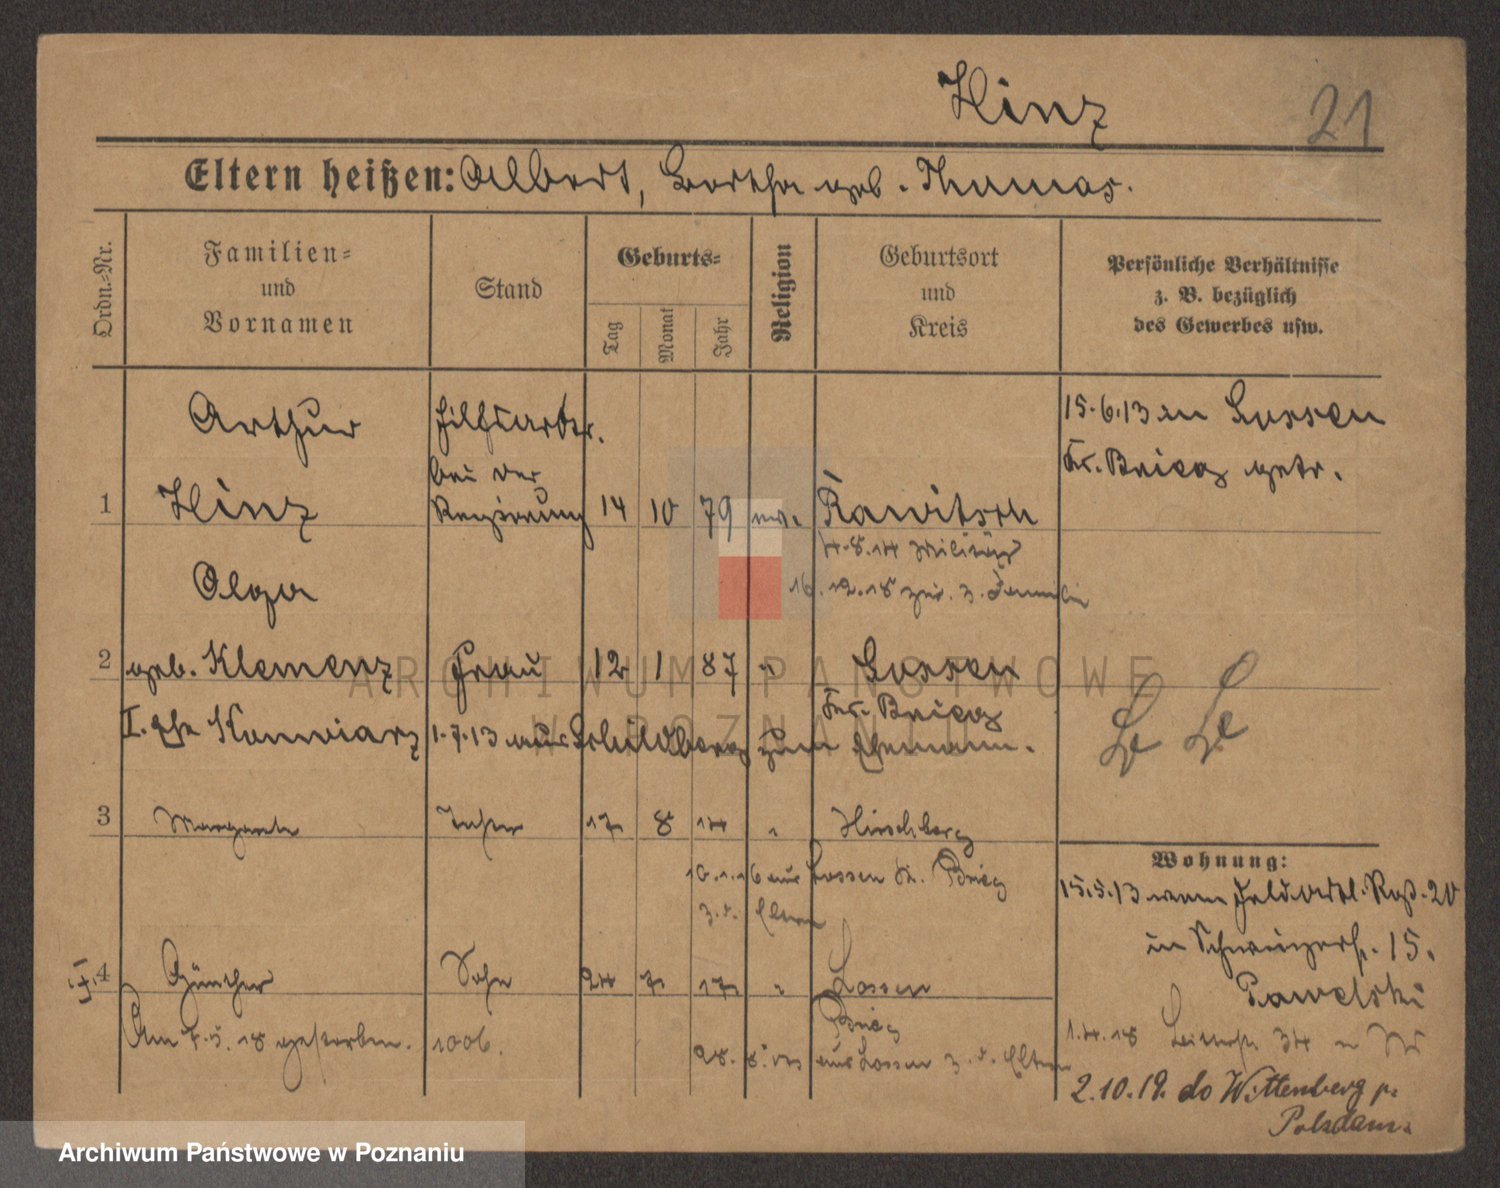 Hinz
21
Eltern heißen: Albert, Bertha geb. Thomas.
Ordn.-Nr.
Familien-
und
Vornamen
Stand
Geburts-
Tag
Monat
Jahr
Religion
Geburtsort
und
Kreis
Persönliche Verhältnisse
z. B. bezüglich
des Gewerbes usw.
Arthur
Hilfsarbtr.
15.6.13 in Lossen
bei der
Kr. Brieg getr.
1 Hinz Regierung 14 10 79 ev. Rawitsch
4.8.14 Militär
Olga
16.12.18 zur. z. Familie
2 geb. Klemenz Frau 12 1 87 " Lossen
Kr. Brieg
I. Ehe Konwiarz 1.7.13 aus Schildberg zum Ehemann.
3 Margarete Tochter 17 8 14 " Hirschberg
Wohnung:
10.1.16 aus Lossen Kr. Brieg
z. d. Eltern
15.5.13 vom
20
in 15.
4 Günther Sohn 24 7 17 " Lossen
Pawelski
Brieg
Am 7.5.18 gestorben. 1006.
1.4.18 34
28.8. aus Lossen z. d. Eltern
2.10.19. do Wittenberg p.
Potsdam.
ARCHIWUM PAŃSTWOWE
W POZNANIU
Archiwum Państwowe w Poznaniu